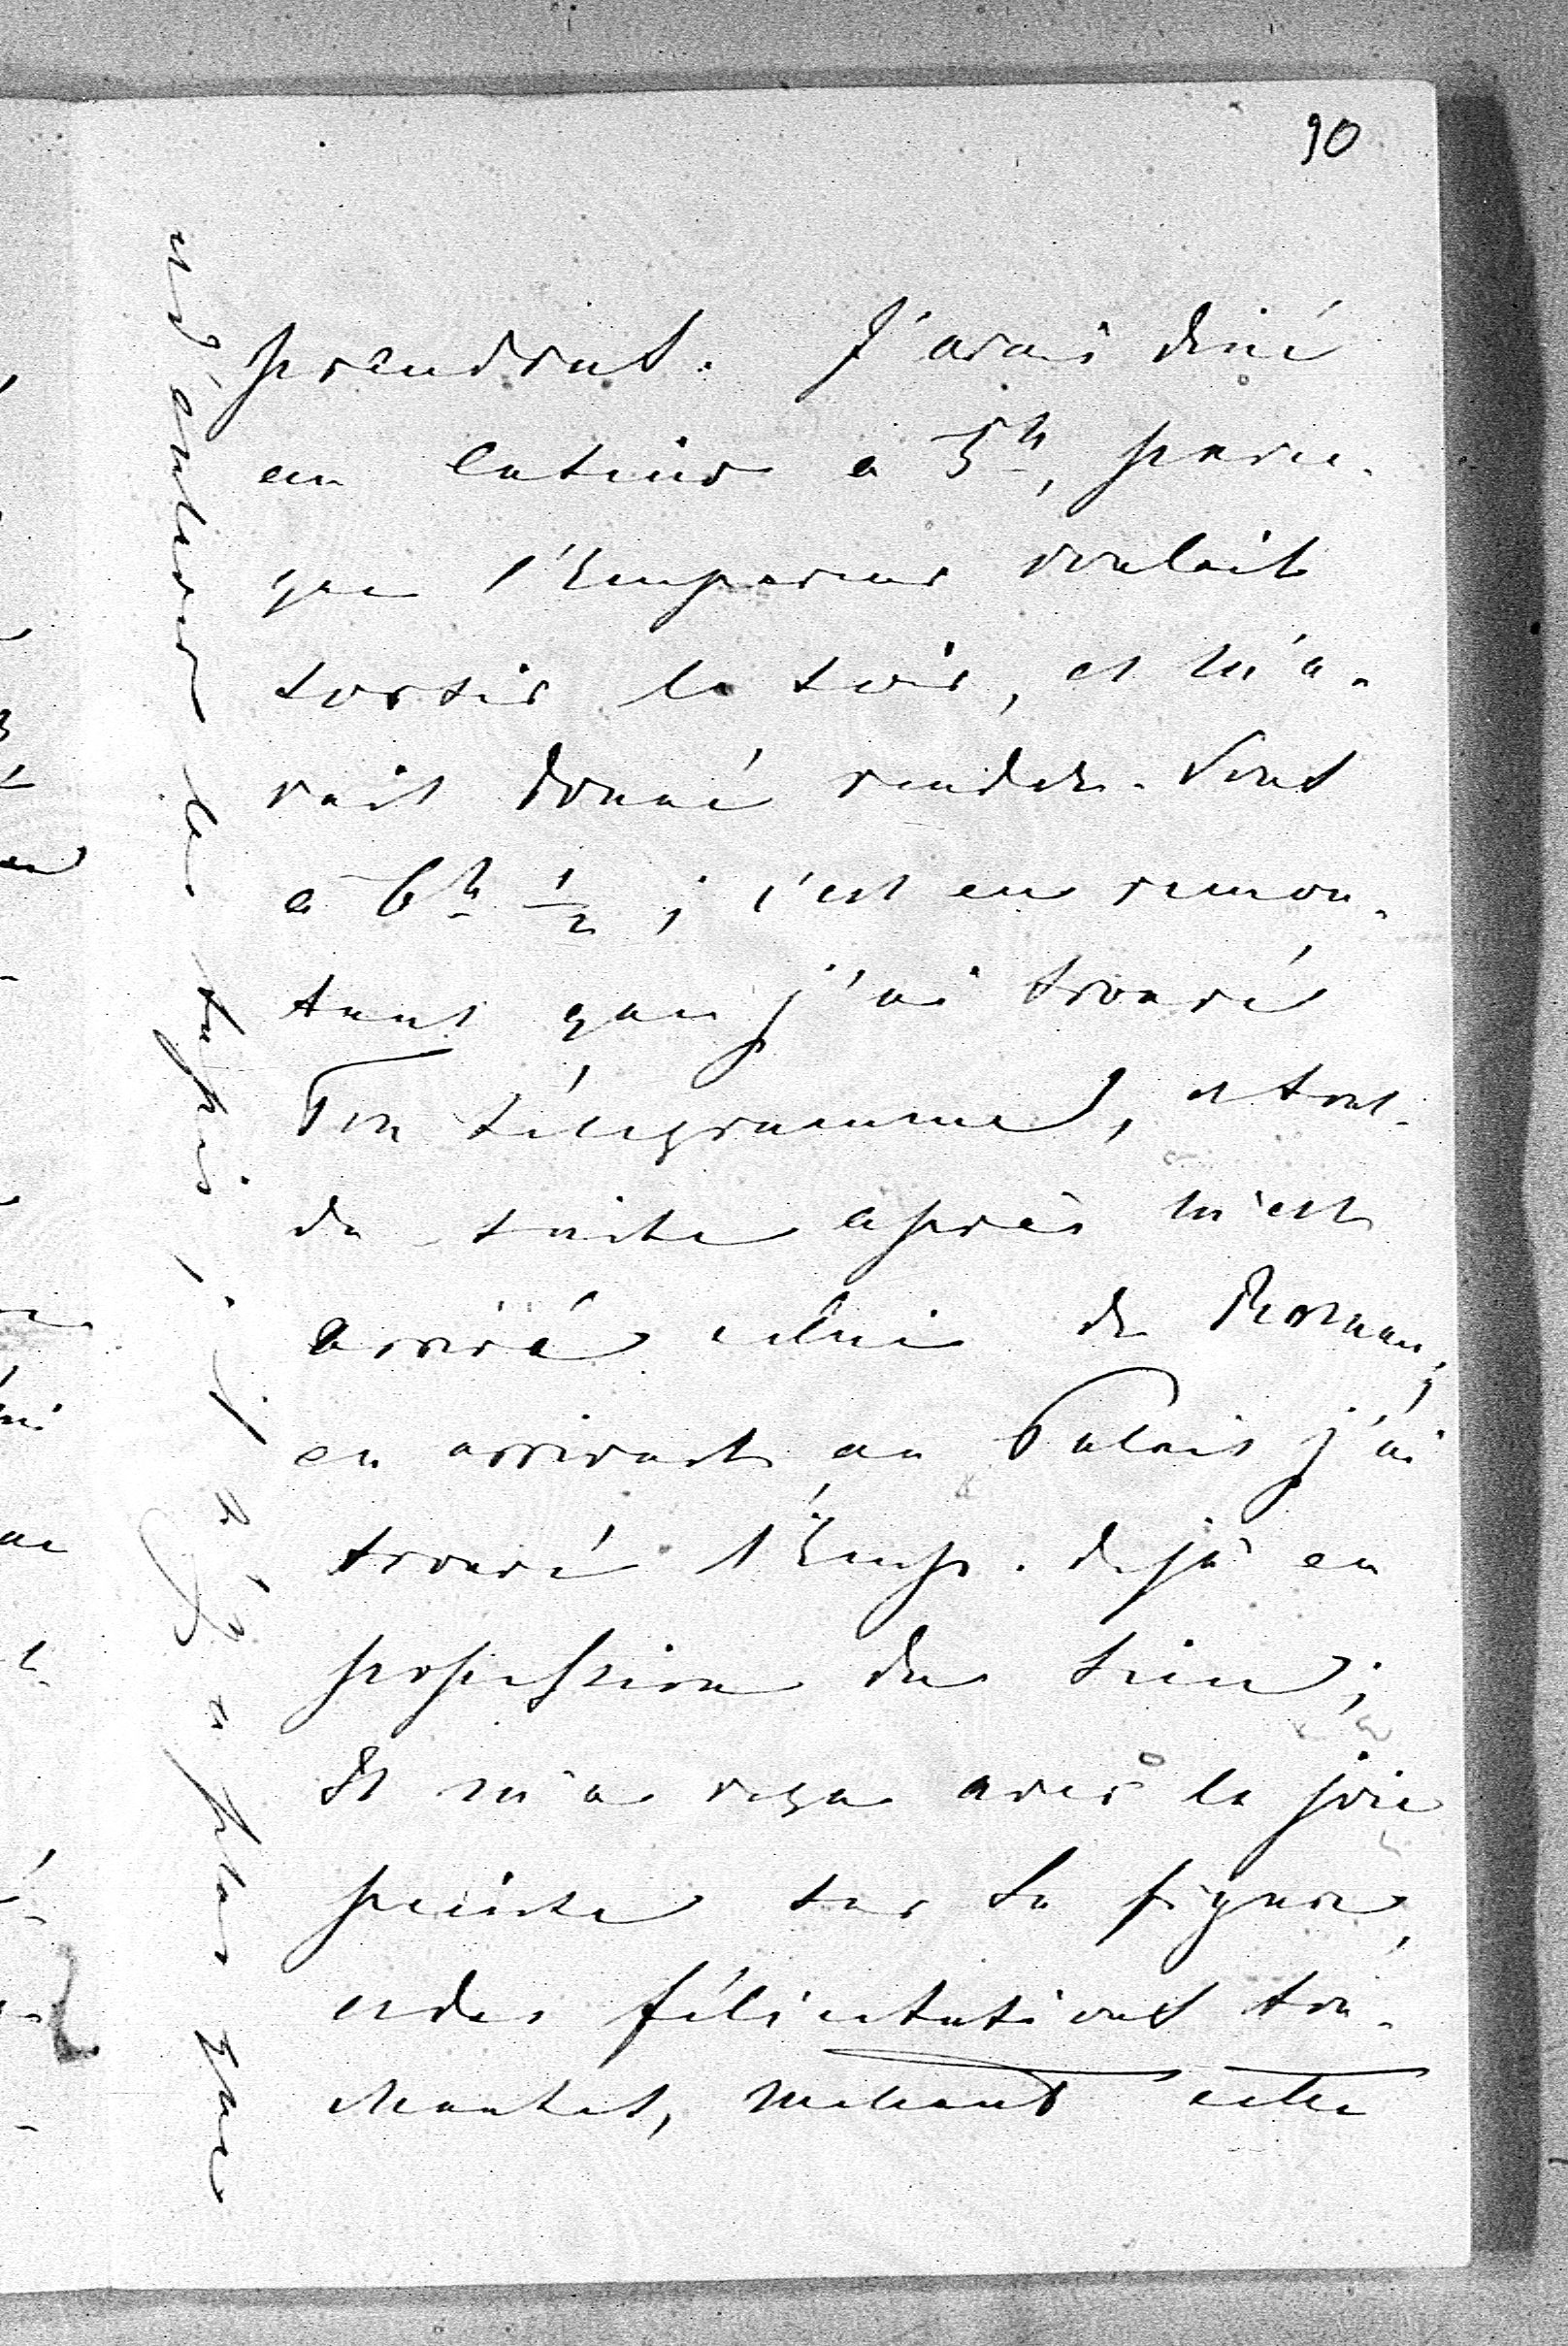 90
prendront. J'avais diné
en entier à 5h, parce-
que l'Empereur voulait
sortir le soir, et m'a-
vait donné rendez-vous
à 6h 1/2; c'est en remon-
tant que j'ai trouvé
Ton télégramme, et tout-
de suite après m'est
arrivé celui de
en arrivant au Palais j'ai
trouvé l'Emp. dejà en
possession du sien;
Il m'a reçu avec la joie
peinte sur Sa figure,
et des félicitations tou-
chantes, mettant cette
et d'enlever le tapis, il n'y a plus que